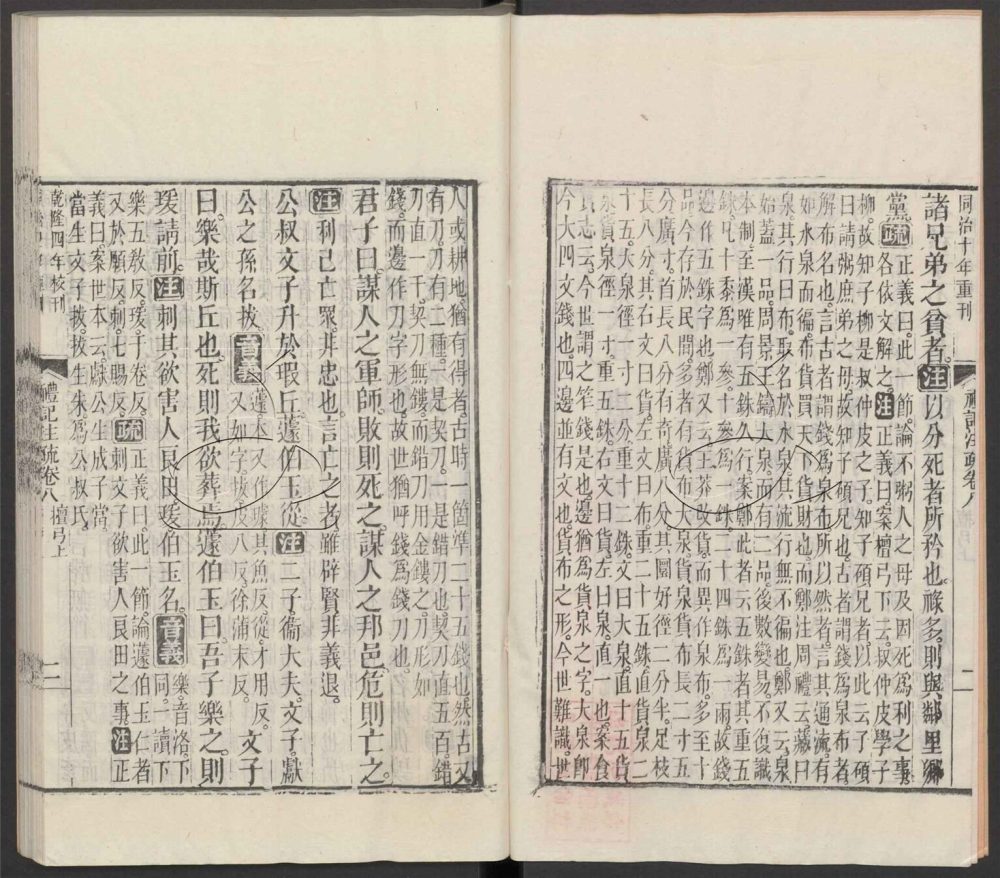 同治十年重刊
諸兄弟之貧者。注以分死者所矜也。祿多。則與鄰里鄉
黨。疏正義曰。此一節。論不粥人之母。及因死爲利之事。
各依文解之。注正義曰。案檀弓下云。叔仲皮學子
柳。故知子柳是叔仲皮之子。知子碩兄者。以此云。子碩
曰。請粥庶弟之母。故知子碩兄也。古者謂錢爲泉布者。
解布名也。言古者謂錢爲泉布。所以然者。言其通流有
如水泉而徧布。貨買天下貨財也。而鄭注周禮云。藏曰
泉。其行曰布。取名於水泉。其流行無不徧也。鄭又云。泉
始蓋一品。周景王鑄大泉而有二品。後數變易。不復識
本制。至漢唯有五銖久行。案鄭此者云。五銖者。其重五
銖。凡十黍爲一參。十參爲一銖。二十四銖爲一兩。故錢
邊作五銖字也。鄭又云。王莽改貨。而異作泉布。多至十
品。今存於民間。多者有貨布大泉貨泉。貨布長二寸五
分。廣寸。首長八分有奇。廣八分。其圜好徑二分半。足枝
長八分。其右文曰貨。左文曰布。重二十五銖。直貨泉二
十五。大泉徑一寸二分。重十二銖。文曰大泉。直十五貨
泉。貨泉徑一寸。重五銖。右文曰貨。左曰泉。直一也。案食
貨志云。今世謂之笮錢是也。邊猶爲貨泉之字。大泉即
今大四文錢也。四邊並有文也。貨布之形。今世難識。世
禮記注疏卷八
二
人或耕地。猶有得者。古時一箇準二十五錢也。然古又
有刀。刀有二種。一是契刀。一是錯刀也。契刀直五百。錯
刀直一千。契刀無鏤。而錯刀用金鏤之。刀形如
錢。而邊作刀字形也。故世猶呼錢爲錢刀也。
君子曰。謀人之軍師。敗則死之。謀人之邦邑。危則亡之。
注利己亡眾。非忠也。言亡之者。雖辟賢非義退。
公叔文子升於瑕丘。蘧伯玉從。注二子衞大夫。文子。獻
公之孫名拔。音義蘧本又作璩。其魚反。從才用反。
又如字。拔。皮八反。徐蒲末反。文子
曰。樂哉斯丘也。死則我欲葬焉。蘧伯玉曰。吾子樂之。則
瑗請前。注刺其欲害人良田。瑗伯玉名。音義樂。音洛。下
同。一讀下
樂五敎反。瑗于卷反。疏正義曰。此一節。論蘧伯玉仁者
又於願反。刺。七賜反。刺文子欲害人良田之事。注正
義曰。案世本云。獻公生成子當。
當生文子拔。拔生朱爲公叔氏。
乾隆四年校刊
禮記注疏卷八
檀弓上
二